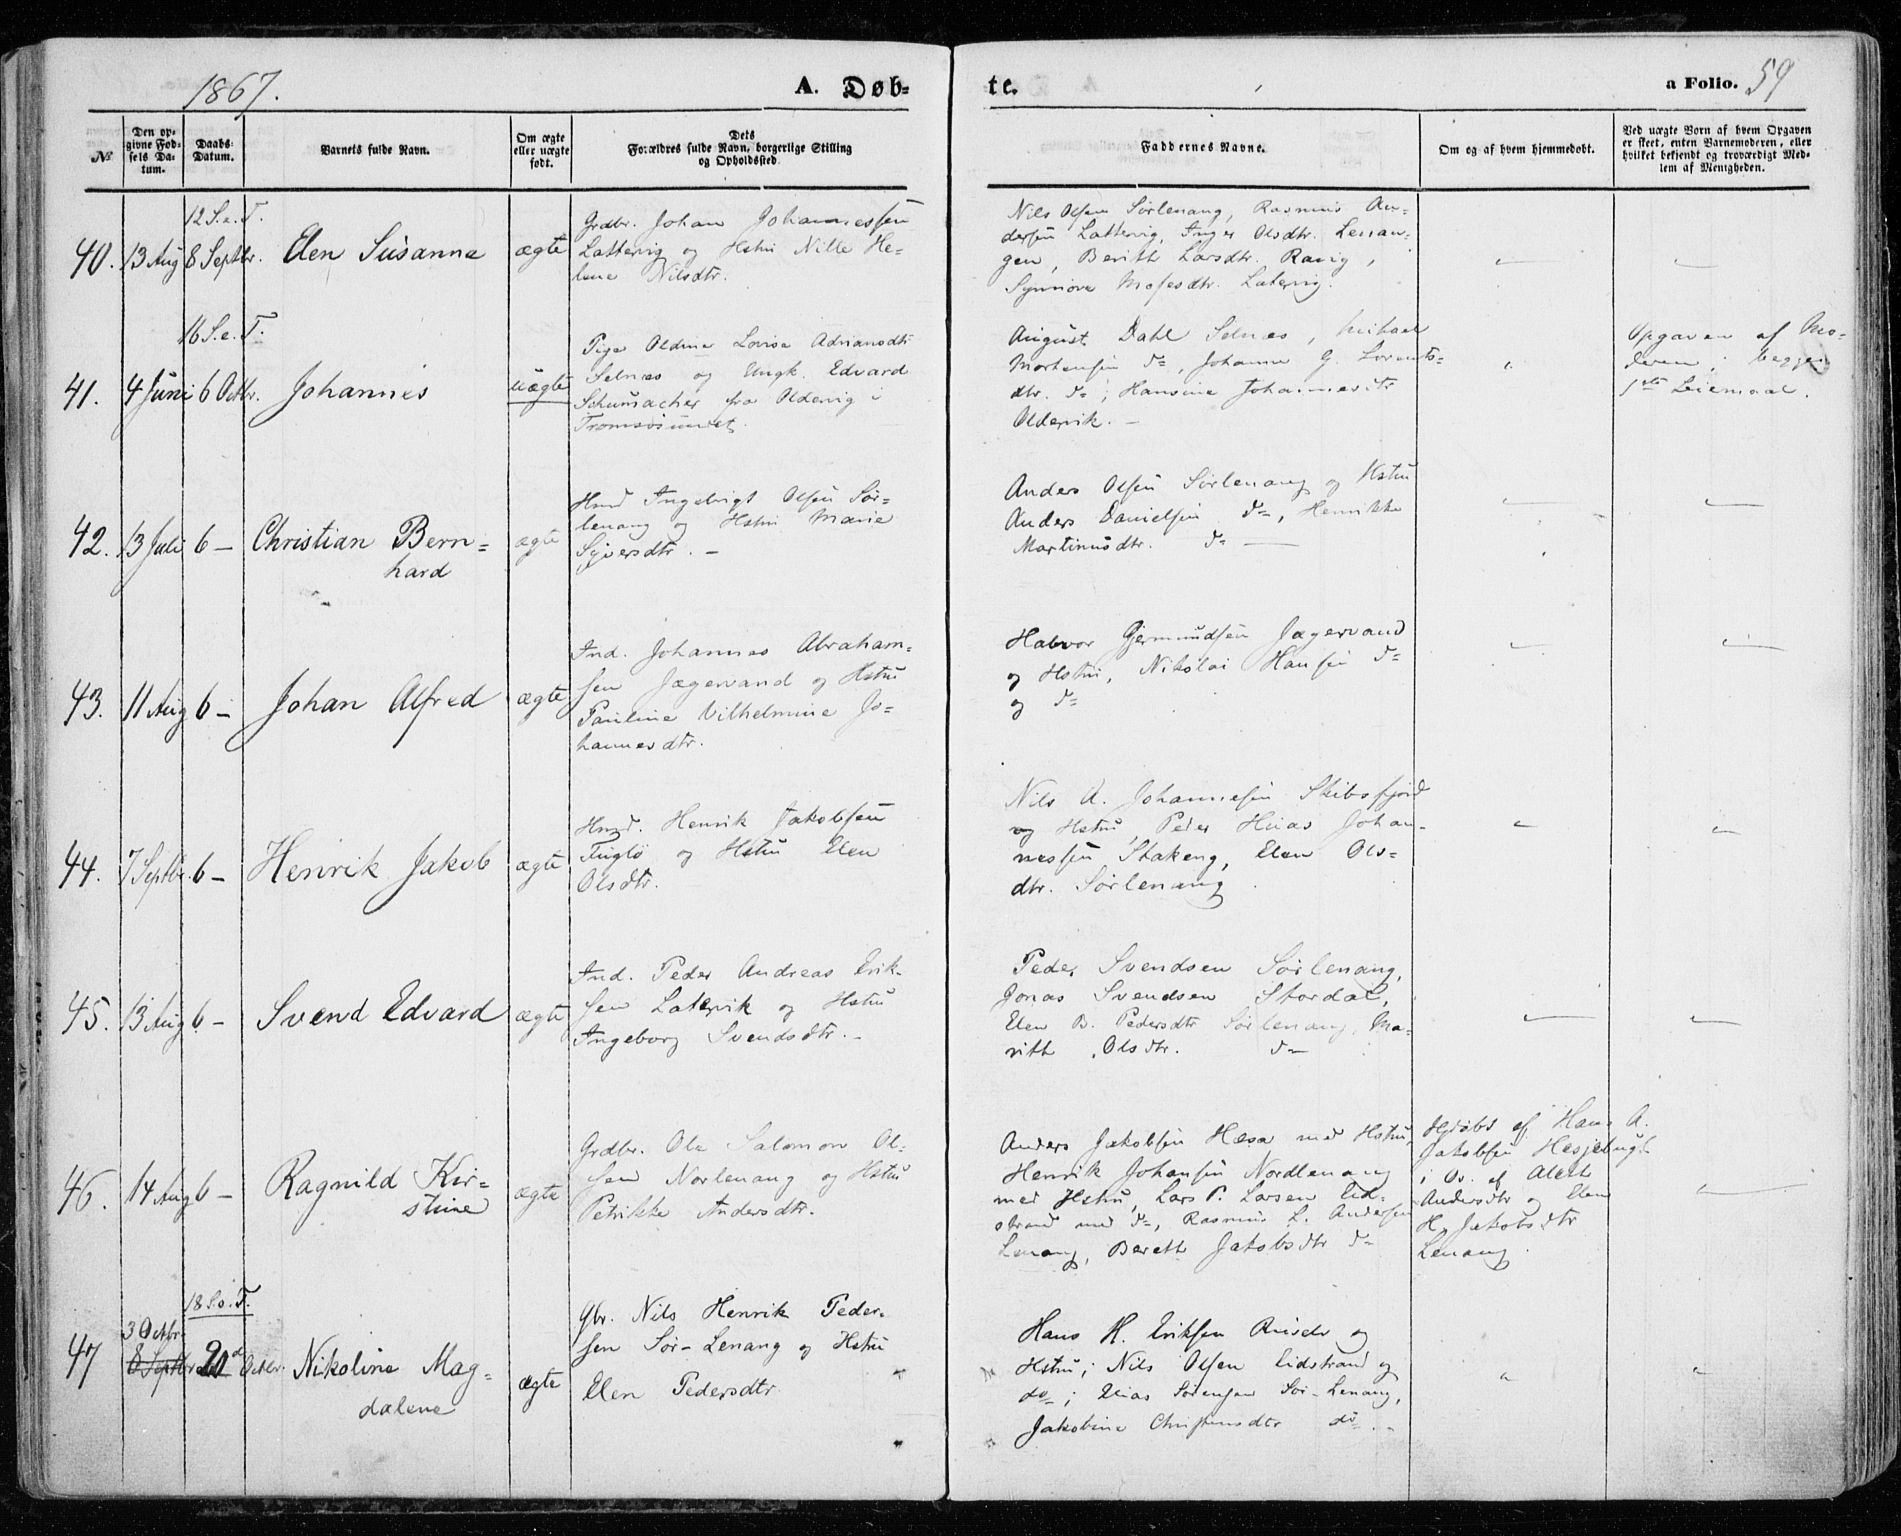 1867.
A. Døb-
te.
a Folio. 59
№
Den op-
givne Fød-
sels Da-
tum.
Daabs-
Datum.
Barnets fulde Navn.
Om ægte
eller uægte
født.
Dets
Forældres fulde Navn, borgerlige Stilling
og Opholdssted.
Faddernes Navne.
Om og af hvem hjemmedøbt.
Ved uægte Børn af hvem Opgaven
er skeet, enten Barnemoderen, eller
hvilket bekjendt og troværdigt Med-
lem af Menigheden.
12 S. e. T.
40. 13 Aug 8 Septbr. Elen Susanna ægte
Grdbr. Johan Johannessen
Lattervig og Hstru Nille He-
lene Nilsdtr.
Nils Olsen Sørlenang, Rasmus An-
dersen Lattervig, Inger Olsdtr. Lenan-
gen, Berith Larsdtr. Ravig,
Synnøve Mosesdtr. Latervig.
16 S. e. T.
41. 4 Juni 6 Octbr. Johannes uægte
Pige Oldine Lovise Adriansdtr.
Selnæs og Ungk. Edvard
Schumacher fra Oldervig i
Tromsøsundet.
August Dahl Selnæs, Mikael
Mortensen do, Johanna G. Lorents-
dtr. do; Hansine Johannesdtr
Oldervik. —
Opgaven af Mo-
deren; begges
1ste Leiermaal.
42. 13 Juli 6 — Christian Bern-
hard
ægte
Hmd Ingebrigt Olsen Sør-
lenang og Hstru Marie
Syversdtr. —
Anders Olsen Sørlenang og Hstru
Anders Danielsen do, Henrikke
Martinusdtr. do —
43. 11 Aug 6 — Johan Alfred ægte
Ind. Johannes Abraham-
sen Jægervand og Hstru
Pauline Vilhelmine Jo-
hannesdtr.
Halvor Gjermundsen Jægervand
og Hstru, Nikolai Hansen do
og do
44. 7 Septbr. 6 — Henrik Jakob ægte
Hmd. Henrik Jakobsen
Fuglø og Hstru Elen
Olsdtr.
Nils A. Johannesen Skibsfjord
og Hstru, Peder Hias Johan-
nessen Stakeng, Elen Ols-
dtr. Sørlenang.
45. 13 Aug 6 — Svend Edvard ægte
Ind. Peder Andreas Erik-
sen Latervik og Hstru
Ingeborg Svendsdtr. —
Peder Svendsen Sørlenang,
Jonas Svendsen Stordal,
Elen B. Pedersdtr Sørlenang, Ma-
rith Olsdtr. do
46. 14 Aug 6 — Ragnild Kir-
stine
ægte
Grdbr. Ole Salomon Ol-
sen Norlenang og Hstru
Petrikke Andersdtr.
Anders Jakobsen Hæsa med Hstru,
Henrik Johansen Nordlenang
med Hstru, Lars P. Larsen Eid-
strand med do, Rasmus L. Andersen
Lenang, Bereth Jakobsdtr do
Hjdøbt af Hans A.
Jakobsen Hesjebugt
i Ov. af Aleth
Andersdtr og Elen
H. Jakobsdtr
Lenang.
18 S. e. T.
3 Octbr.
47 8 Septbr 20d Octbr. Nikoline Mag-
dalene
ægte
Gbr. Nils Henrik Peder-
sen Sør-Lenang og Hstru
Elen Pedersdtr
Hans H. Eriksen og
Hstru; Nils Olsen Eidstrand og
do; Elias Sørensen Sør-Lenang,
Jakobine Christensdtr do.